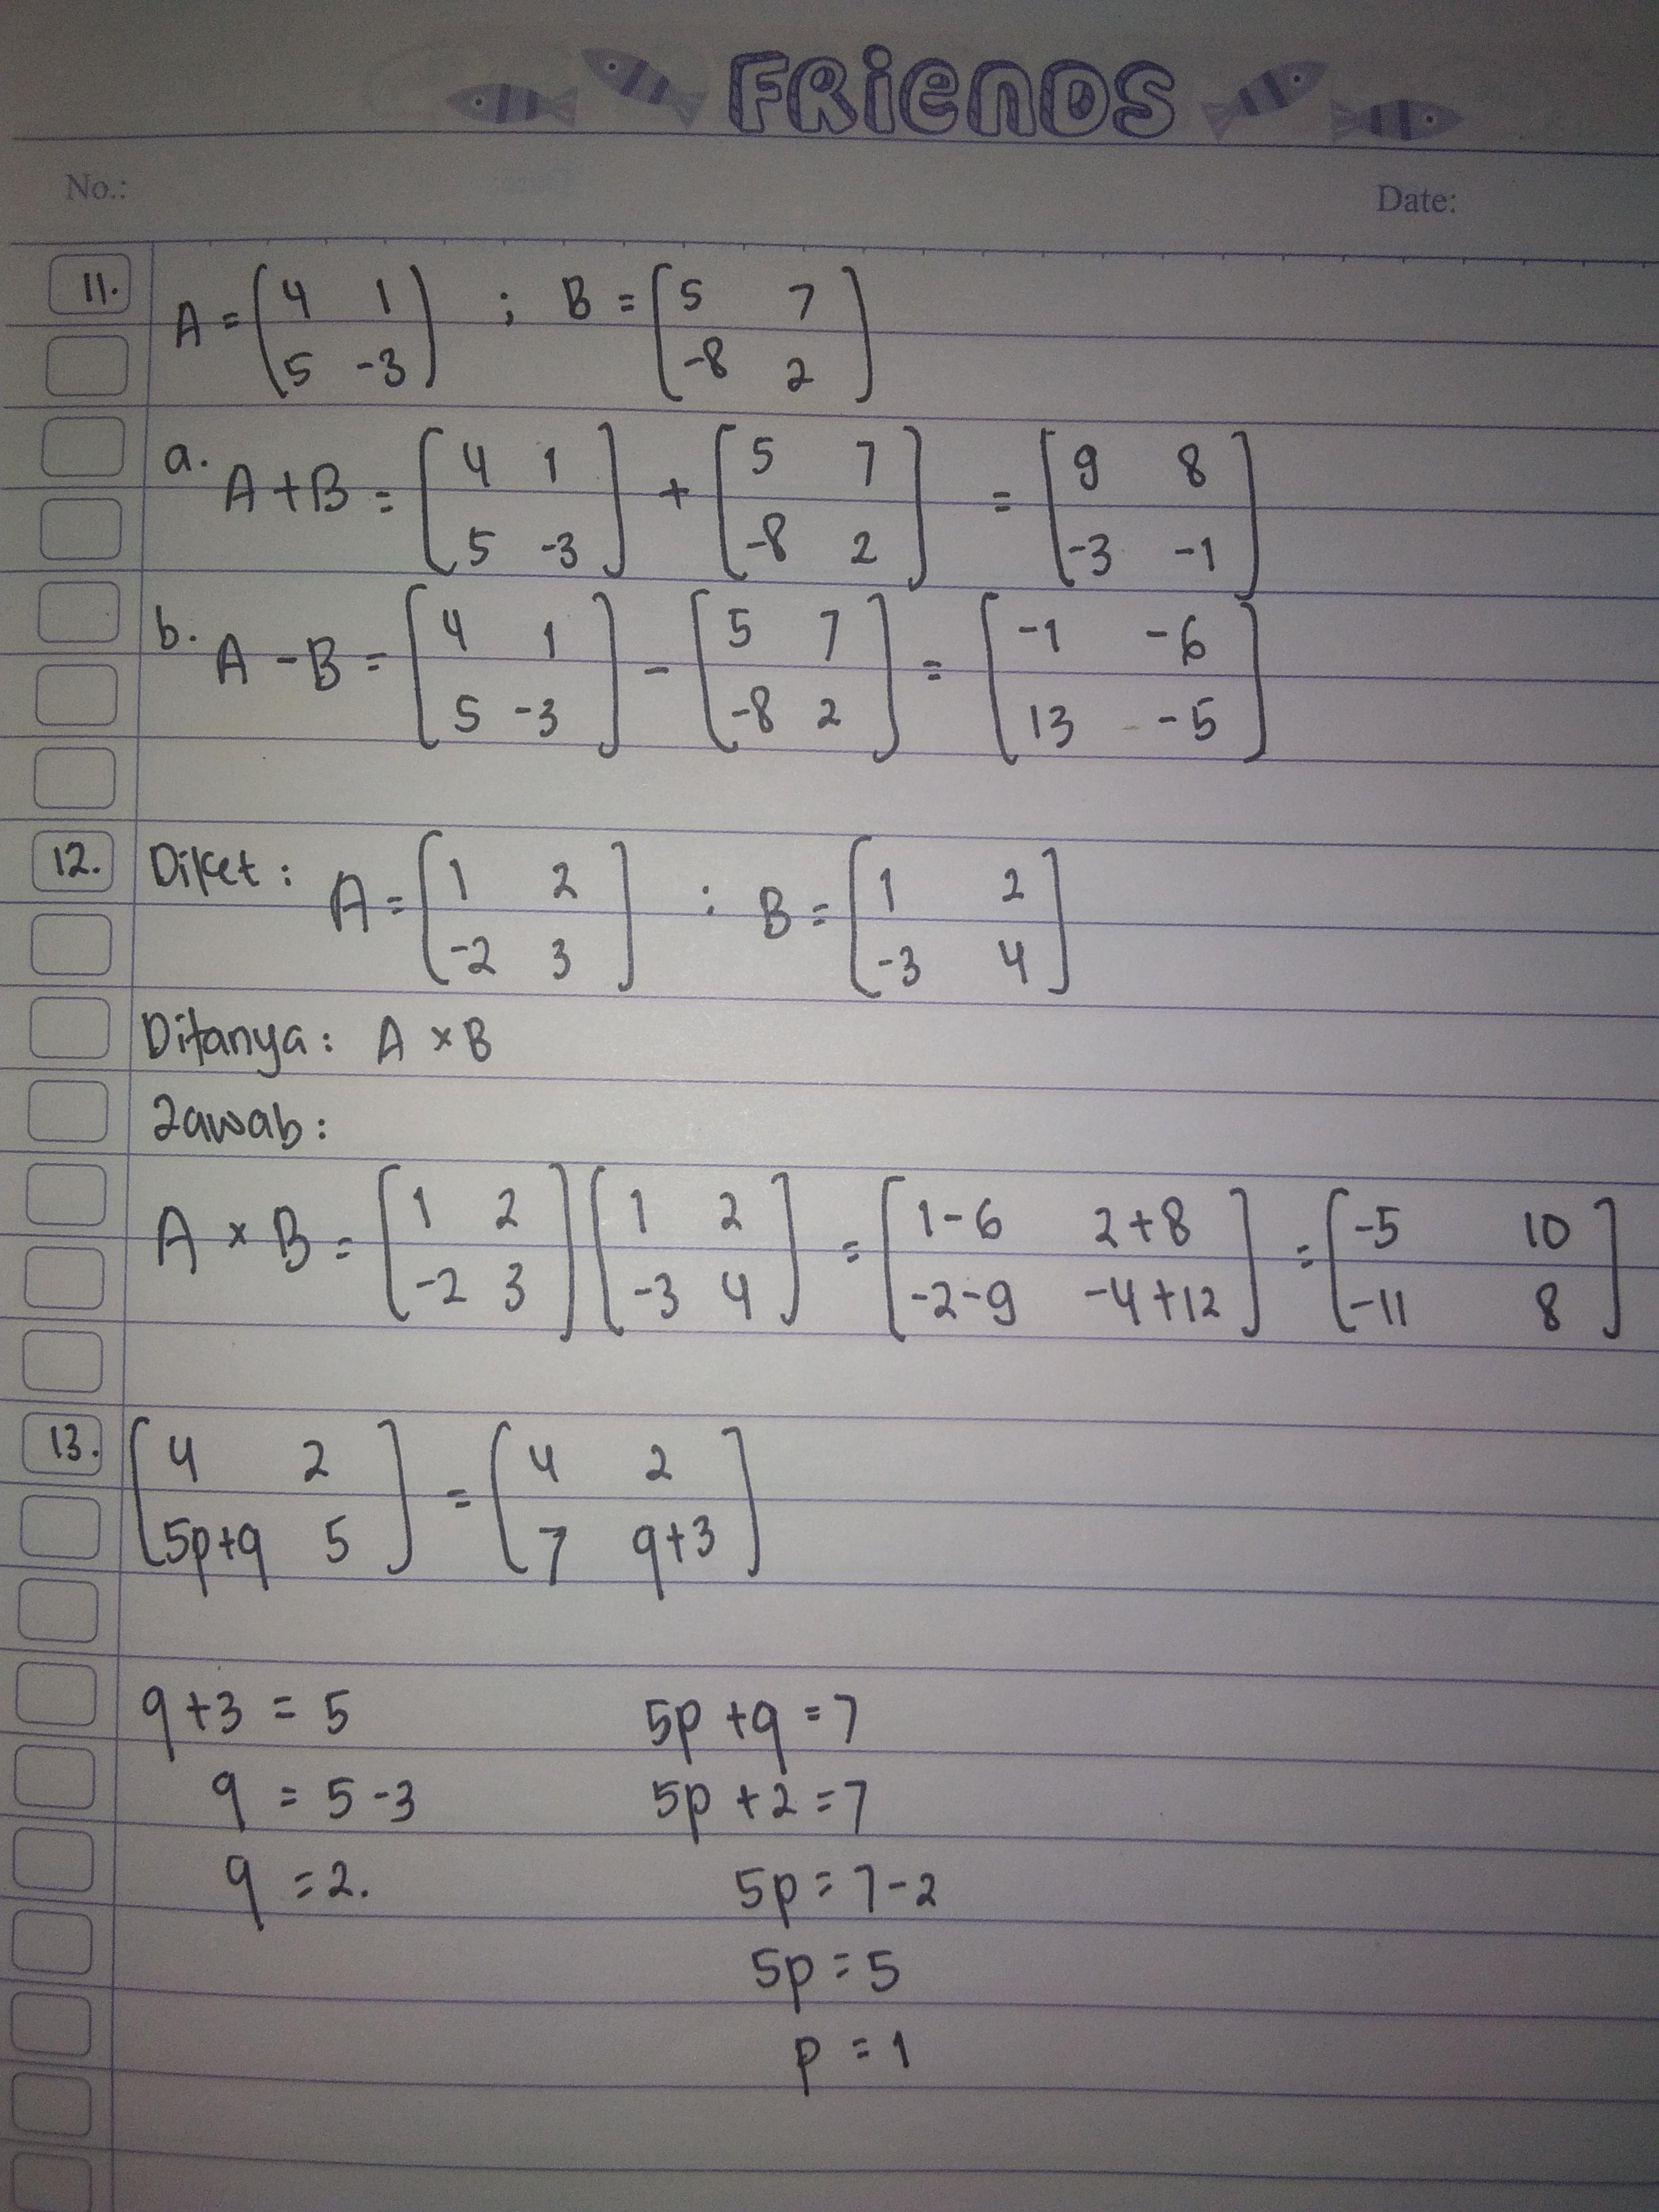 FRiENDS
No.: Date:
11. A = [4 1; 5 -3] ; B = [5 7; -8 2]
a. A + B = [4 1; 5 -3] + [5 7; -8 2] = [9 8; -3 -1]
b. A - B = [4 1; 5 -3] - [5 7; -8 2] = [-1 -6; 13 -5]
12. Diket : A = [1 2; -2 3] ; B = [1 2; -3 4]
Ditanya : A × B
Jawab :
A × B = [1 2; -2 3] [1 2; -3 4] = [1-6 2+8; -2-9 -4+12] = [-5 10; -11 8]
13. [4 2; 5p+q 5] = [4 2; 7 q+3]
q+3 = 5 5p + q = 7
q = 5 - 3 5p + 2 = 7
q = 2. 5p = 7 - 2
5p = 5
p = 1